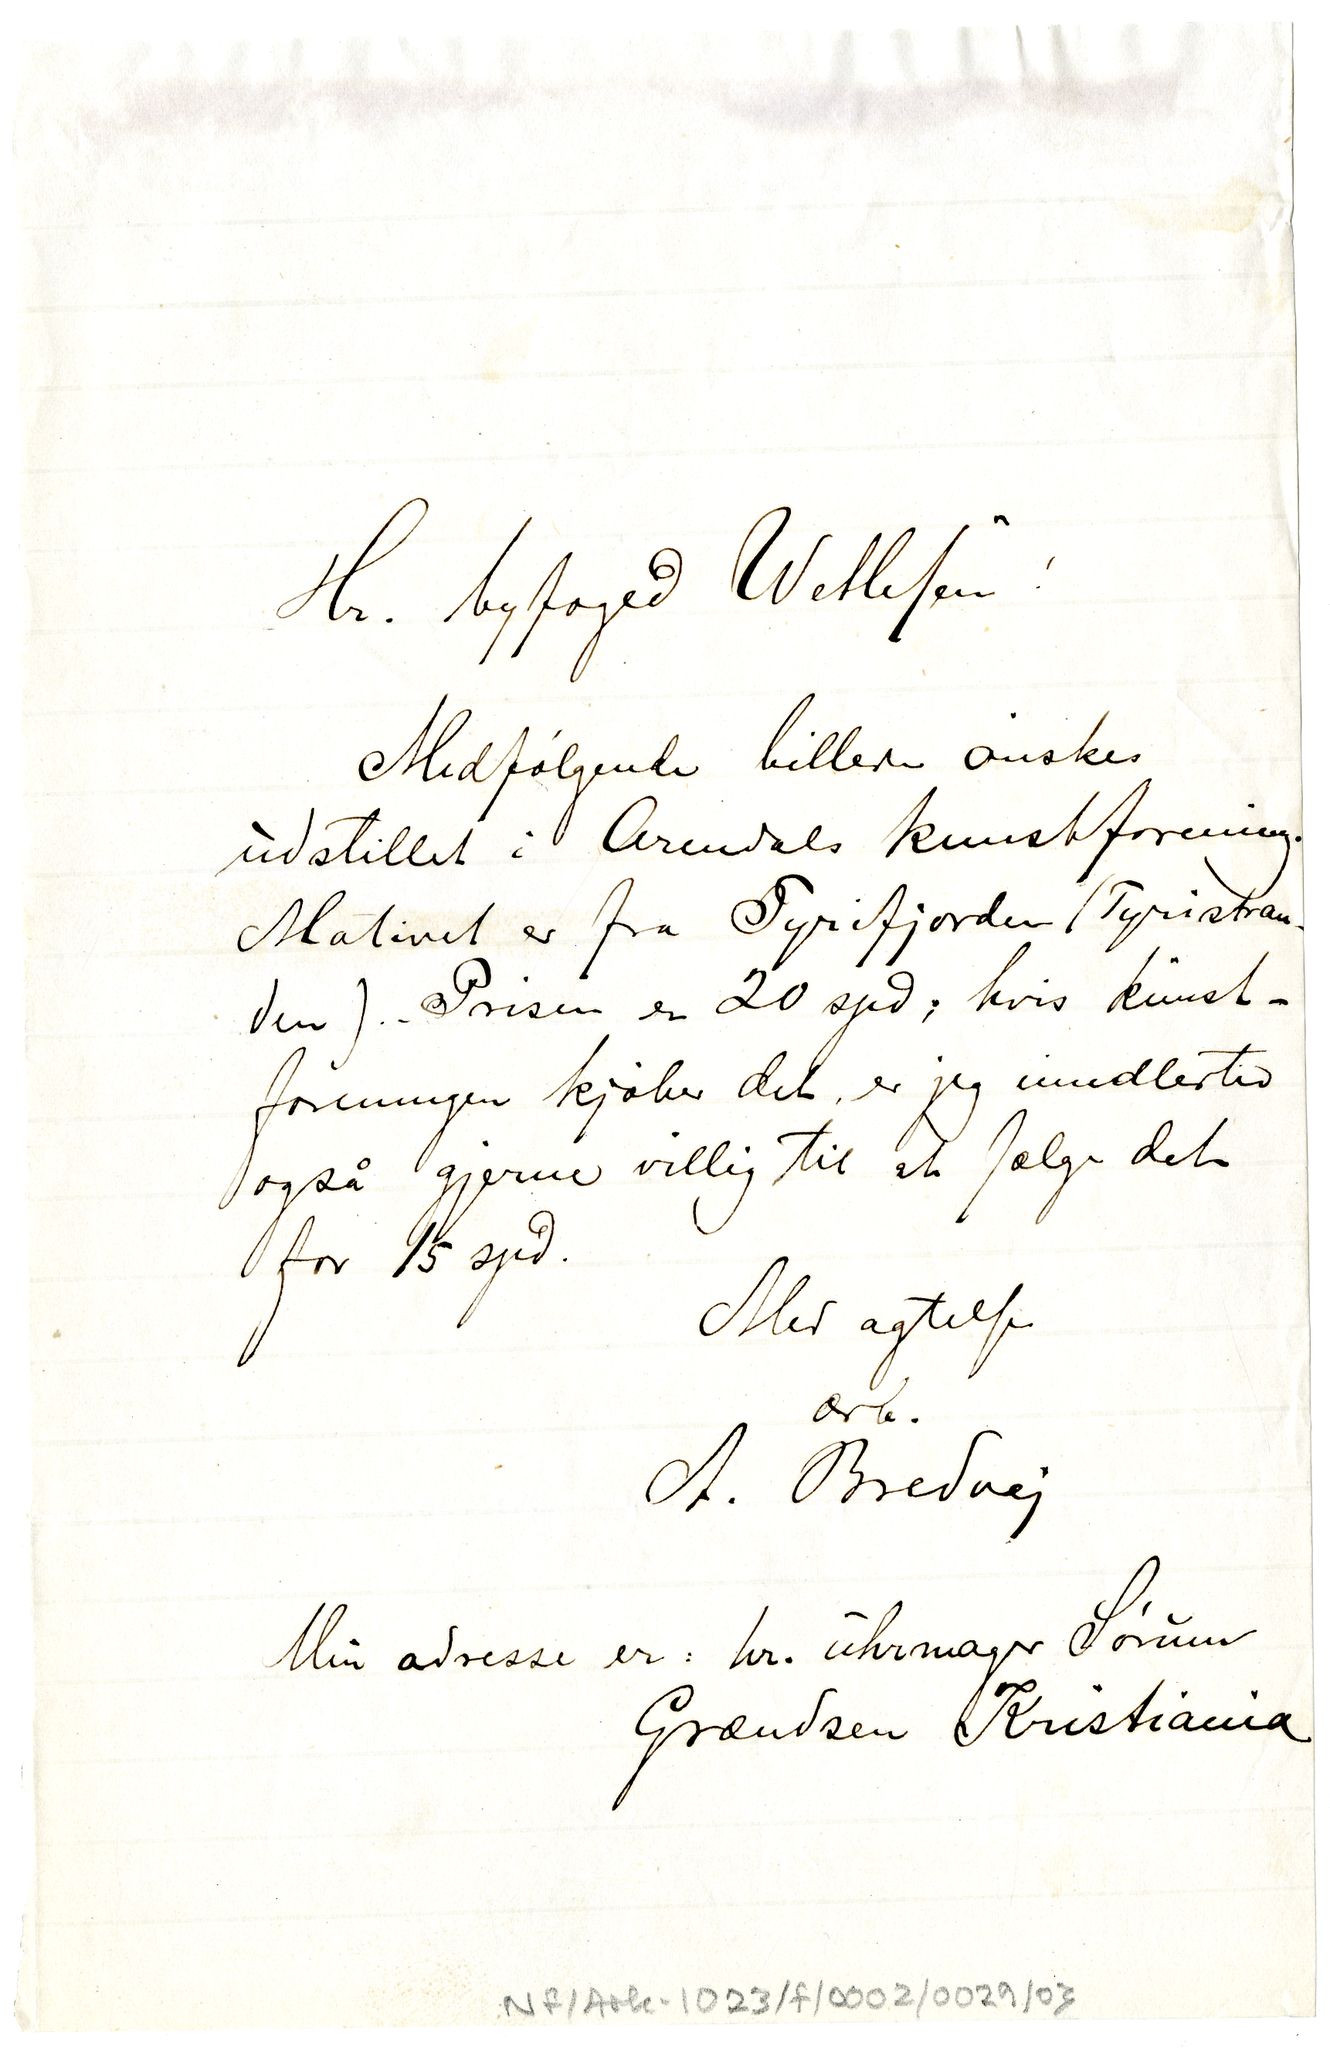 Hr. byfoged Wetlesen!
Medfølgende billede ønskes
udstillet i Arendals kunstforening.
Motivet er fra Tyrifjorden (Tyristran-
den). - Prisen er 20 spd; hvis kunst-
foreningen kjøber det, er jeg imidlertid
også gjerne villig til at sælge det
for 15 spd.
Med agtelse
ærb.
A. Bredvej
Min adresse er: hr. uhrmager Sørum
Grændsen Kristiania
Nf/Ark-1023/f/0002/0029/03